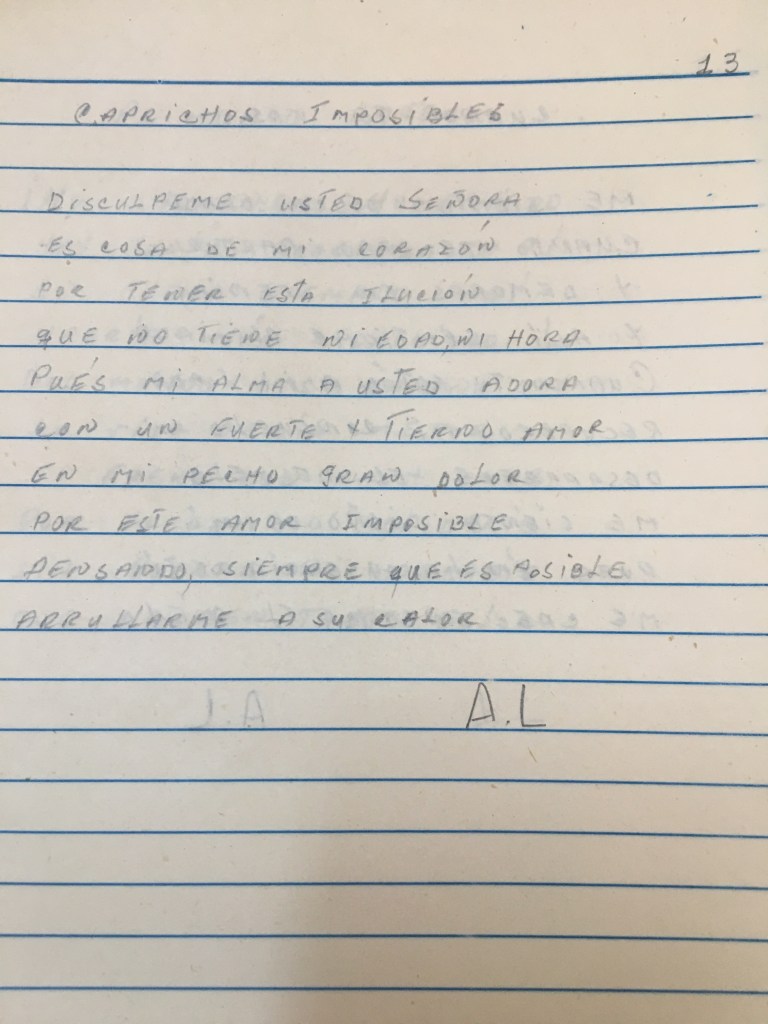 13
CAPRICHOS IMPOSIBLES
DISCULPEME USTED SEÑORA
ES COSA DE MI CORAZÓN
POR TENER ESTA ILUCIÓN
QUE NO TIENE NI EDAD, NI HORA
PUÉS MI ALMA A USTED ADORA
CON UN FUERTE Y TIERNO AMOR
EN MI PECHO GRAN DOLOR
POR ESTE AMOR IMPOSIBLE
PENSANDO, SIEMPRE QUE ES POSIBLE
ARRULLARME A SU CALOR
A.L